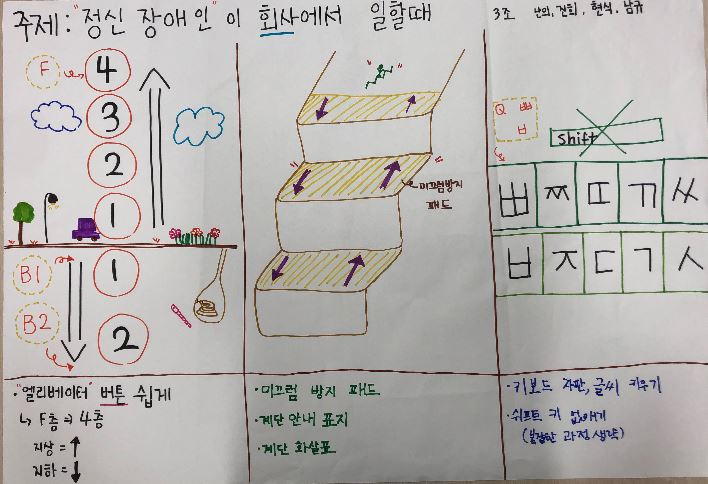 주제: "정신 장애인"이 회사에서 일할때
3조 난의, 건희, 현식, 남규
F
4
3
2
1
B1
1
B2
2
미끄럼방지
패드
Q ㅃ
ㅂ
Shift
ㅃ ㅉ ㄸ ㄲ ㅆ
ㅂ ㅈ ㄷ ㄱ ㅅ
· "엘리베이터" 버튼 쉽게
↳ F층 ⇒ 4층
지상 = ↑
지하 = ↓
· 미끄럼 방지 패드
· 계단 안내 표지
· 계단 화살표
· 키보드 자판, 글씨 키우기
· 쉬프트 키 없애기
(복잡한 과정 생략)